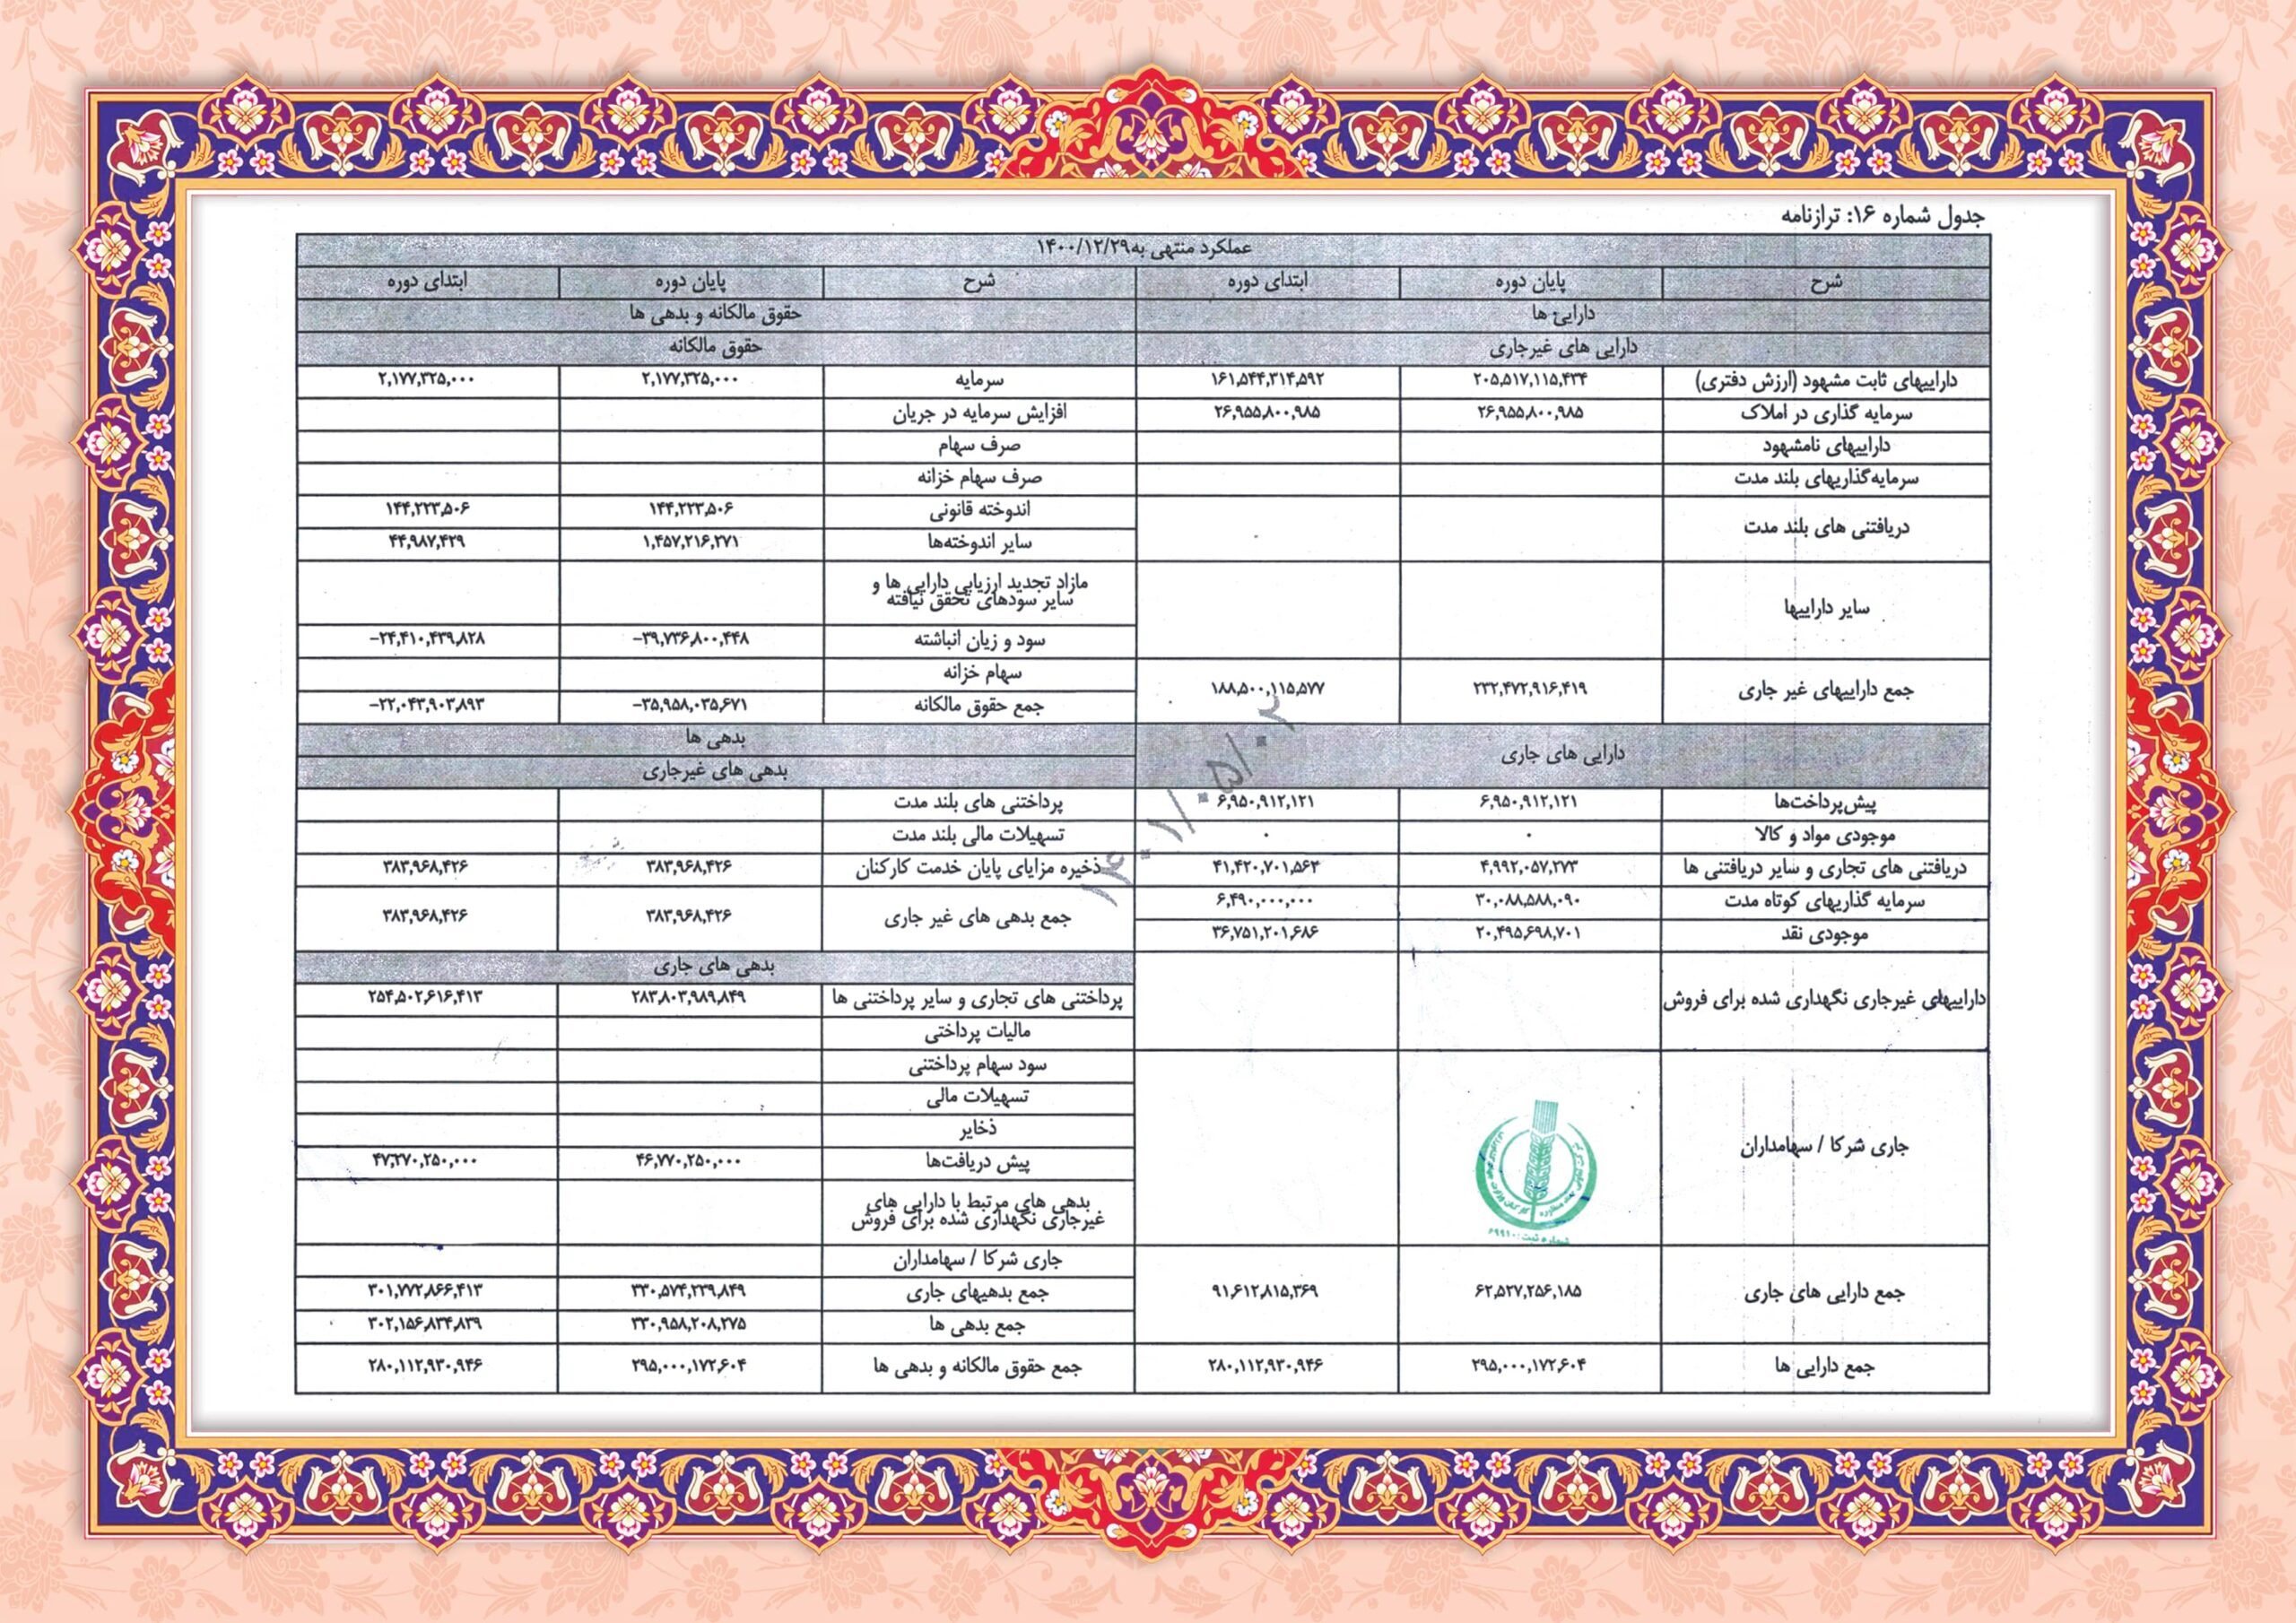 جدول شماره ۱۶: ترازنامه
عملکرد منتهی به۱۴۰۰/۱۲/۲۹
شرح پایان دوره ابتدای دوره شرح پایان دوره ابتدای دوره
دارایی ها حقوق مالکانه و بدهی ها
دارایی های غیرجاری حقوق مالکانه
داراییهای ثابت مشهود (ارزش دفتری) ۲۰۵,۵۱۷,۱۱۵,۴۳۴ ۱۶۱,۵۴۴,۳۱۴,۵۹۲ سرمایه ۲,۱۷۷,۳۲۵,۰۰۰ ۲,۱۷۷,۳۲۵,۰۰۰
سرمایه گذاری در املاک ۲۶,۹۵۵,۸۰۰,۹۸۵ ۲۶,۹۵۵,۸۰۰,۹۸۵ افزایش سرمایه در جریان
داراییهای نامشهود صرف سهام
سرمایه‌گذاریهای بلند مدت صرف سهام خزانه
دریافتنی های بلند مدت اندوخته قانونی ۱۴۴,۲۲۳,۵۰۶ ۱۴۴,۲۲۳,۵۰۶
سایر اندوخته‌ها ۱,۴۵۷,۲۱۶,۲۷۱ ۴۴,۹۸۷,۴۲۹
سایر داراییها مازاد تجدید ارزیابی دارایی ها و
سایر سودهای تحقق نیافته
سود و زیان انباشته -۳۹,۷۳۶,۸۰۰,۴۴۸ -۲۴,۴۱۰,۴۳۹,۸۲۸
سهام خزانه
جمع داراییهای غیر جاری ۲۳۲,۴۷۲,۹۱۶,۴۱۹ ۱۸۸,۵۰۰,۱۱۵,۵۷۷ جمع حقوق مالکانه -۳۵,۹۵۸,۰۳۵,۶۷۱ -۲۲,۰۴۳,۹۰۳,۸۹۳
دارایی های جاری بدهی ها
بدهی های غیرجاری
پیش‌پرداخت‌ها ۶,۹۵۰,۹۱۲,۱۲۱ ۶,۹۵۰,۹۱۲,۱۲۱ پرداختنی های بلند مدت
موجودی مواد و کالا ۰ ۰ تسهیلات مالی بلند مدت
دریافتنی های تجاری و سایر دریافتنی ها ۴,۹۹۲,۰۵۷,۲۷۳ ۴۱,۴۲۰,۷۰۱,۵۶۲ ذخیره مزایای پایان خدمت کارکنان ۳۸۳,۹۶۸,۴۲۶ ۳۸۳,۹۶۸,۴۲۶
سرمایه گذاریهای کوتاه مدت ۳۰,۰۸۸,۵۸۸,۰۹۰ ۶,۴۹۰,۰۰۰,۰۰۰ جمع بدهی های غیر جاری ۳۸۳,۹۶۸,۴۲۶ ۳۸۳,۹۶۸,۴۲۶
موجودی نقد ۲۰,۴۹۵,۶۹۸,۷۰۱ ۳۶,۷۵۱,۲۰۱,۶۸۶
۱۴۰۱/۰۵/۰۲
بدهی های جاری
داراییهای غیرجاری نگهداری شده برای فروش پرداختنی های تجاری و سایر پرداختنی ها ۲۸۳,۸۰۳,۹۸۹,۸۴۹ ۲۵۴,۵۰۲,۶۱۶,۴۱۳
مالیات پرداختی
سود سهام پرداختنی
تسهیلات مالی
ذخایر
جاری شرکا / سهامداران پیش دریافت‌ها ۴۶,۷۷۰,۲۵۰,۰۰۰ ۴۷,۲۷۰,۲۵۰,۰۰۰
بدهی های مرتبط با دارایی های
غیرجاری نگهداری شده برای فروش
شماره ثبت: ۶۹۹۱۰
جاری شرکا / سهامداران
جمع دارایی های جاری ۶۲,۵۲۷,۲۵۶,۱۸۵ ۹۱,۶۱۲,۸۱۵,۳۶۹ جمع بدهیهای جاری ۳۳۰,۵۷۴,۲۳۹,۸۴۹ ۳۰۱,۷۷۲,۸۶۶,۴۱۳
جمع بدهی ها ۳۳۰,۹۵۸,۲۰۸,۲۷۵ ۳۰۲,۱۵۶,۸۳۴,۸۳۹
جمع دارایی ها ۲۹۵,۰۰۰,۱۷۲,۶۰۴ ۲۸۰,۱۱۲,۹۳۰,۹۴۶ جمع حقوق مالکانه و بدهی ها ۲۹۵,۰۰۰,۱۷۲,۶۰۴ ۲۸۰,۱۱۲,۹۳۰,۹۴۶